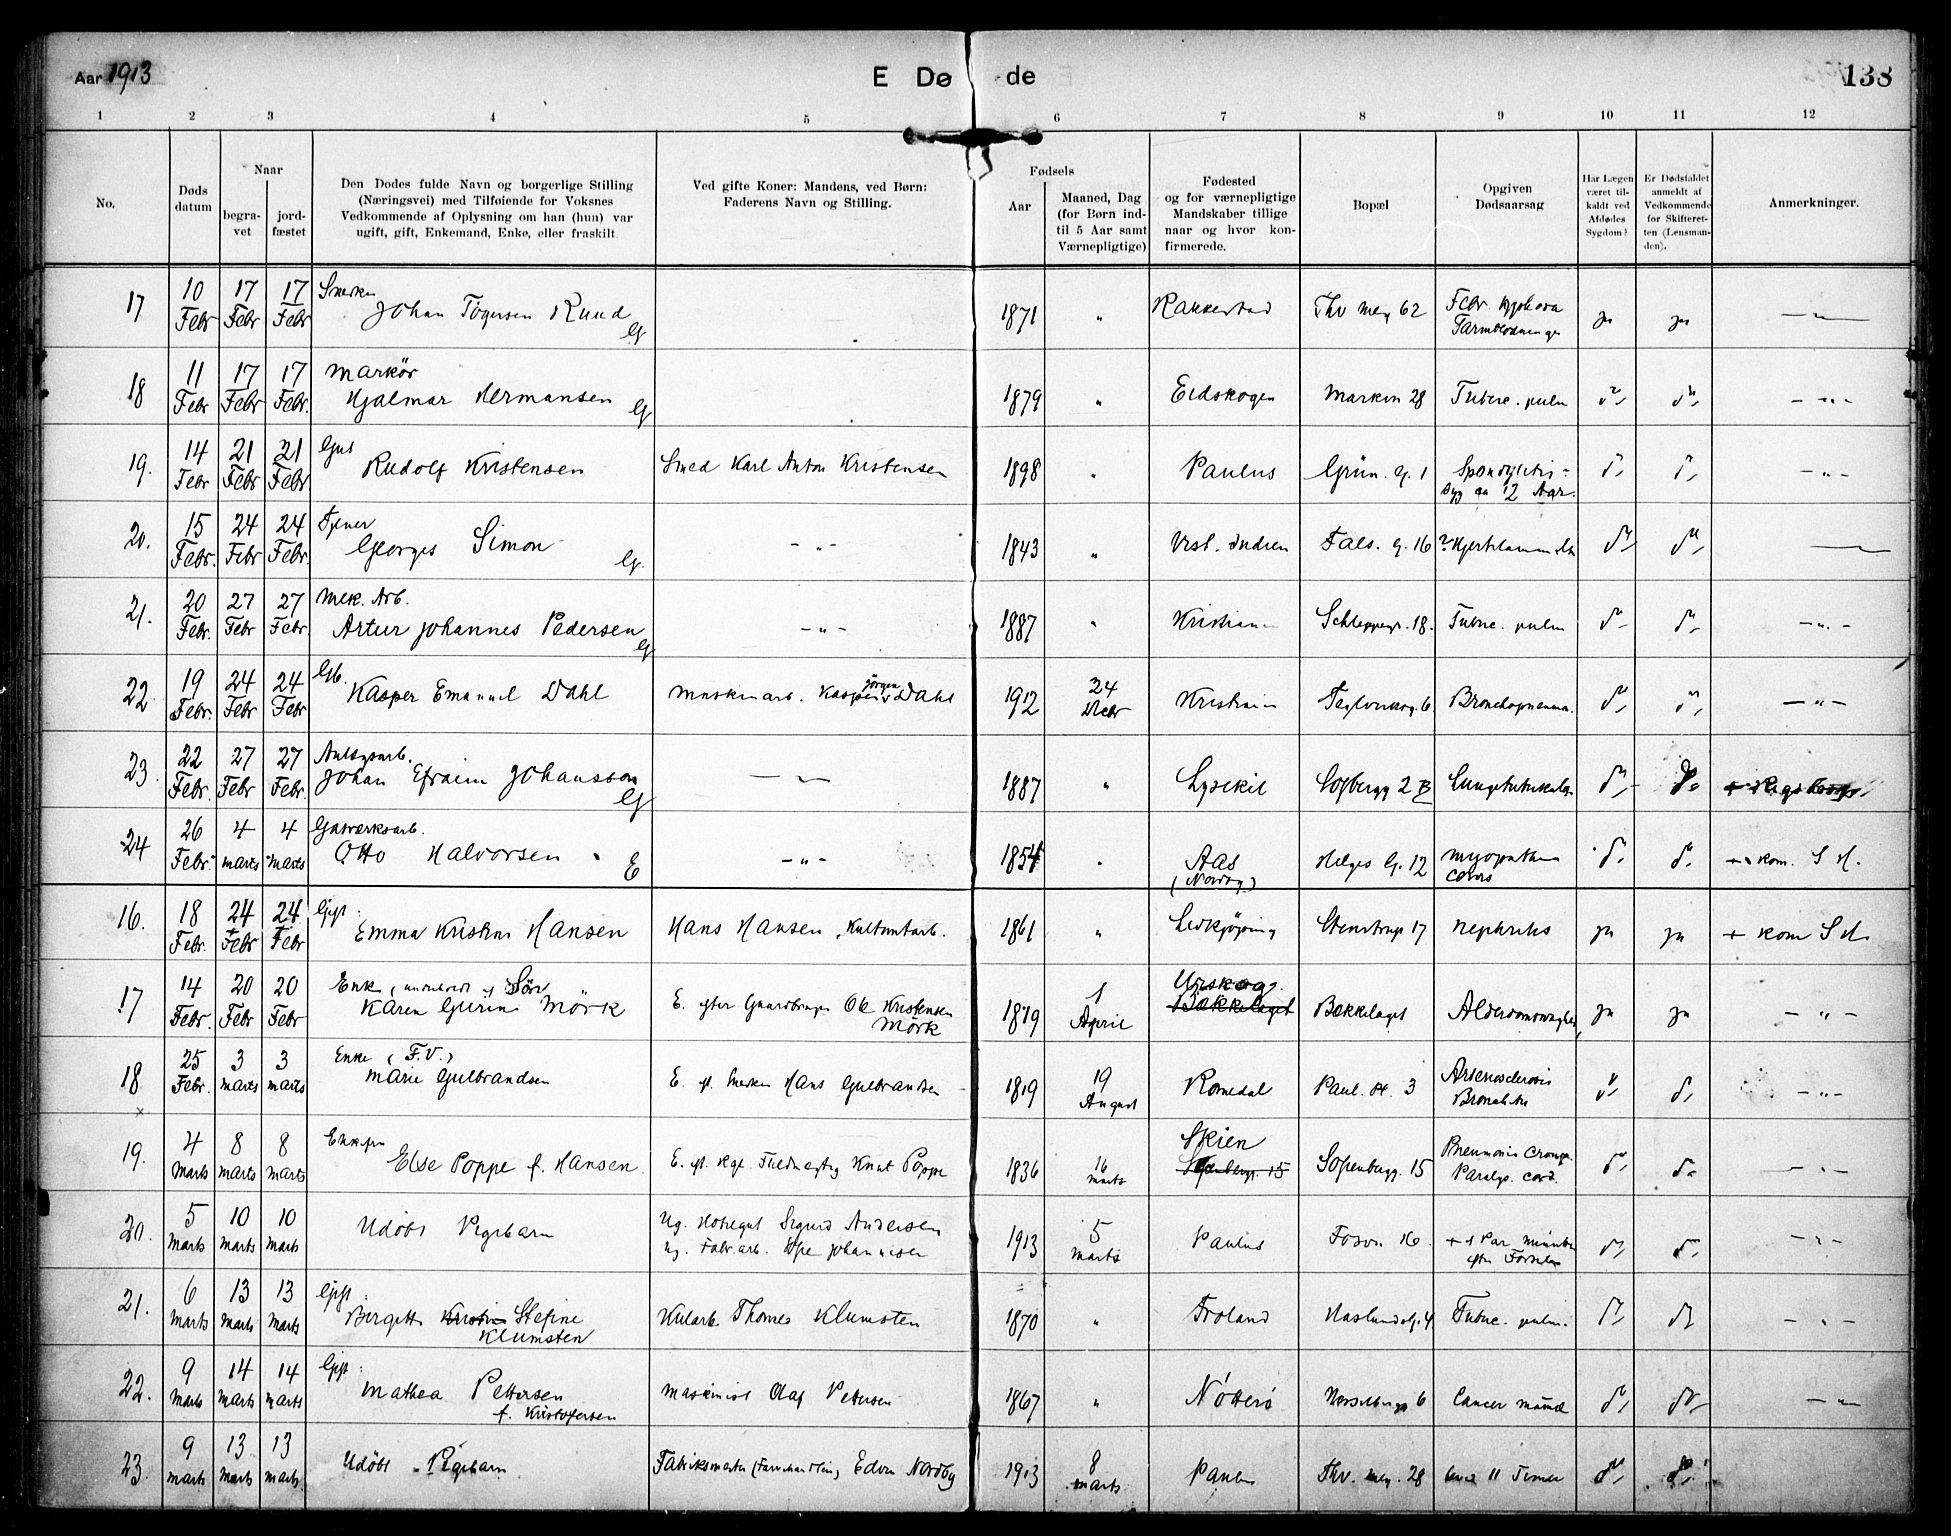 Aar 1913
E Dø de
138
1 2 3 4 5 6 7 8 9 10 11 12
No.
Døds datum
Naar
begra-vet
jord-fæstet
Den Dødes fulde Navn og borgerlige Stilling
(Næringsvei) med Tilføiende for Voksnes
Vedkommende af Oplysning om han (hun) var
ugift, gift, Enkemand, Enke, eller fraskilt.
Ved gifte Koner: Mandens, ved Børn:
Faderens Navn og Stilling.
Fødsels
Aar
Maaned, Dag
(for Børn ind-
til 5 Aar samt
Værnepligtige)
Fødested
og for værnepligtige
Mandskaber tillige
naar og hvor kon-
firmerede.
Bopæl
Opgiven
Dødsaarsag.
Har Lægen
været til-
kaldt ved
Afdødes
Sygdom?
Er Dødsfaldet
anmeldt af
Vedkommende
for Skifteret-
ten (Lensman-
den).
Anmerkninger.
17 10 Febr 17 Febr 17 Febr Snerker
Johan Tøgersen Ruud G 1871 " Rakkestad Thv. Mey 62 Febr. typhoia Tarmblødninger ja ja — " —
18 11 Febr 17 Febr 17 Febr. Markör
Hjalmar Hermansen G 1879 " Eidskogen Markvn 28 Tuberc. pulm — " —
19. 14 Febr 21 Febr 21 Febr Gut
Rudolf Kristensen Smed Karl Anton Kristensen 1898 " Paulus Grün. G. 1 Spondylitis syg ca 12 Aar. — " —
20. 15 Febr. 24 Febr 24 Febr. Tjener
Georges Simon G. — " — 1843 " Vest. Indien Fals. G. 16
21. 20 Febr. 27 Febr 27 Febr. Mek. Arb.
Artur Johannes Pedersen G — " — 1887 " Kristiania Schleppegr. 18. Tuberc. pulm — " —
22 19 Febr. 24 Febr 24 Febr
Kasper Emanuel Dahl Maskinarb. Kasper Jørgen Dahl 1912 24 Kristiania Teglverksg. 6 Bronchopneum. — " —
23. 22 Febr. 27 Febr 27 Febr. Anlægsarb.
Johan Efraim Johansson G — " — 1887 " Lysekil Sofbergg 2 B
24 26 Febr 4 Marts 4 Marts Gasværksarb.
Otto Halvorsen E — " — 1854 " Aas (Nordby) Helges G. 12 Myopathia cordis + kom. S H.
16. 18 Febr. 24 Febr 24 Febr Gift:
Emma Kristine Hansen Hans Hansen, Kulkontarb. 1861 " Lidkjöping Stenstrup 17 Nephritis ja ja + kom S H.
17 14 Febr. 20 Febr 20 Febr Enke
Karen Gurine Mörk E. efter Gaardbruger Ole Kristensen Mörk 1819 1 April Urskog. Bækkelaget Bækkelaget Alderdomssvaghed ja ja — " —
18 25 Febr. 3 Marts 3 Marts Enke (F.V.)
Marie Gulbrandsen E. ef. Snerker Hans Gulbrandsen 1819 19 August Romedal Paul. Pl. 3 Arteriosclerosis Bronchitis — " —
19. 4 Marts 8 Marts 8 Marts Enkefru
Else Poppe f. Hansen. E. ef. Kgl. Fuldmægtig Knut Poppe 1836 16 Marts Skien Sofienbergg. 15 Sofienbergg. 15 Pneumonia Croup. Paralys. cord. — " —
20. 5 Marts 10 Marts 10 Marts Udöbt Pigebarn Ug. Hotelgut Sigurd Andersen
1913 5 Marts Paulus Fosvn 16. — " —
21. 6 Marts 13 Marts 13 Marts Gift:
Birgitte Kristine Stefine Klumsten Kularb. Thomas Klumsten 1870 " Froland Haslundsg. 4 Tuberc. pulm. — " —
22. 9 Marts 14 Marts 14 Marts Gift:
Mathea Pettersen f. Kristofersen Maskinist Olaf Pettersen 1867 " Nötterö Hesselbergg 6 Cancer mamæ — " —
23. 9 Marts 13 Marts 13 Marts Udöbt Pigebarn Fabriksmester (Farvehandling) Edvin Nordby 1913 8 Marts Paulus Thv. Mey. 28 leved 11 Timer